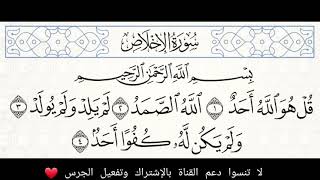 سُورَةُ الإِخْلَاصِ
بِسْمِ اللَّهِ الرَّحْمَٰنِ الرَّحِيمِ
قُلْ هُوَ اللَّهُ أَحَدٌ ١ اللَّهُ الصَّمَدُ ٢ لَمْ يَلِدْ وَلَمْ يُولَدْ ٣
وَلَمْ يَكُن لَّهُ كُفُوًا أَحَدٌ ٤
لا تنسوا دعم القناة بالإشتراك وتفعيل الجرس ❤